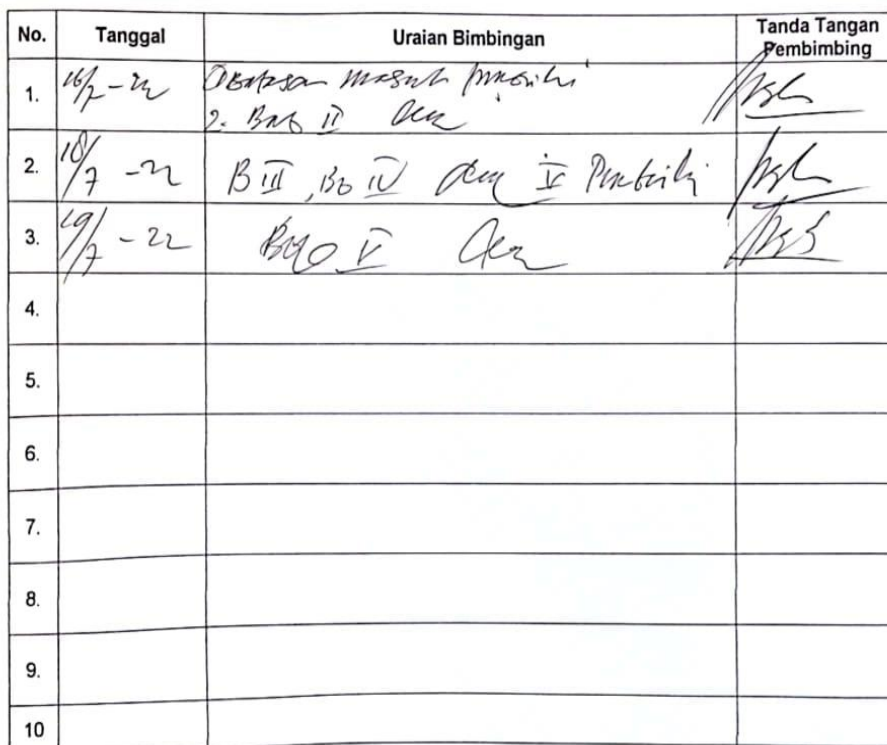 No. Tanggal Uraian Bimbingan Tanda Tangan
Pembimbing
1. 16/7-22
2. Bab II Acc
2. 18/7 -22 B III, Bab IV Acc V Perbaiki
3. 19/7 - 22 Bab V Acc
4.
5.
6.
7.
8.
9.
10